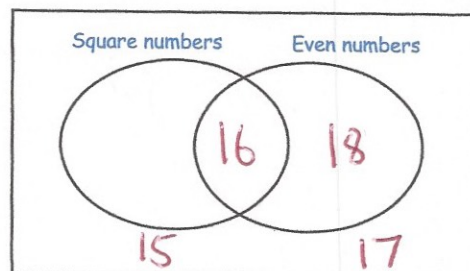 Square numbers Even numbers
16 18
15 17